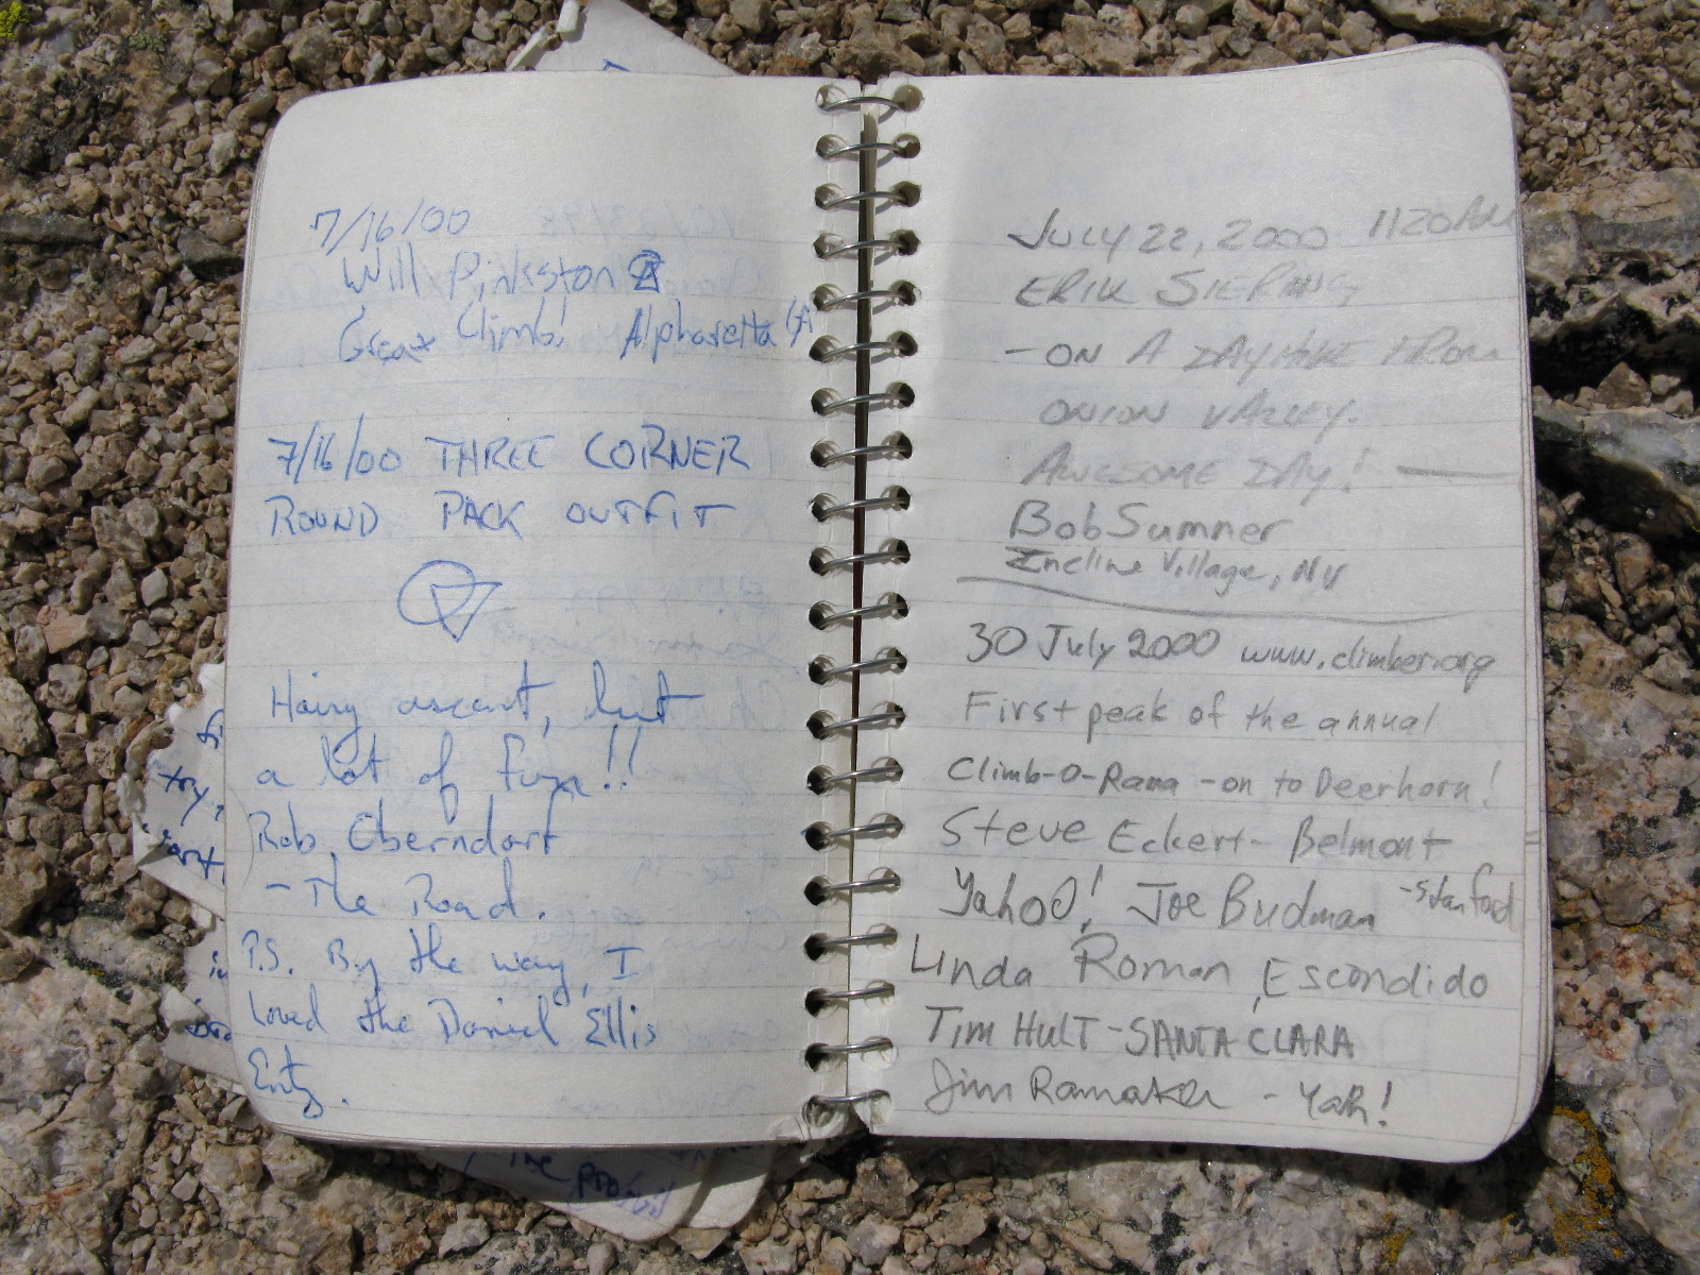 7/16/00
Will Pinkston
Great Climb! Alpharetta GA
7/16/00 THREE CORNER
ROUND PACK OUTFIT
Hairy ascent, but
a lot of fun!!
Rob Oberndorf
- The Road.
P.S. By the way, I
loved the Daniel Ellis
Entry.
JULY 22, 2000 1120AM
ERIK SIERING
- ON A DAYHIKE FROM
ONION VALLEY.
AWESOME DAY!
Bob Sumner
Incline Village, NV
30 July 2000 www.climber.org
First peak of the annual
Climb-O-Rama - on to Deerhorn!
Steve Eckert - Belmont
Yahoo! Joe Budman - Stanford
Linda Roman, Escondido
TIM HULT - SANTA CLARA
Jim Ramaker - Yah!
try,
in